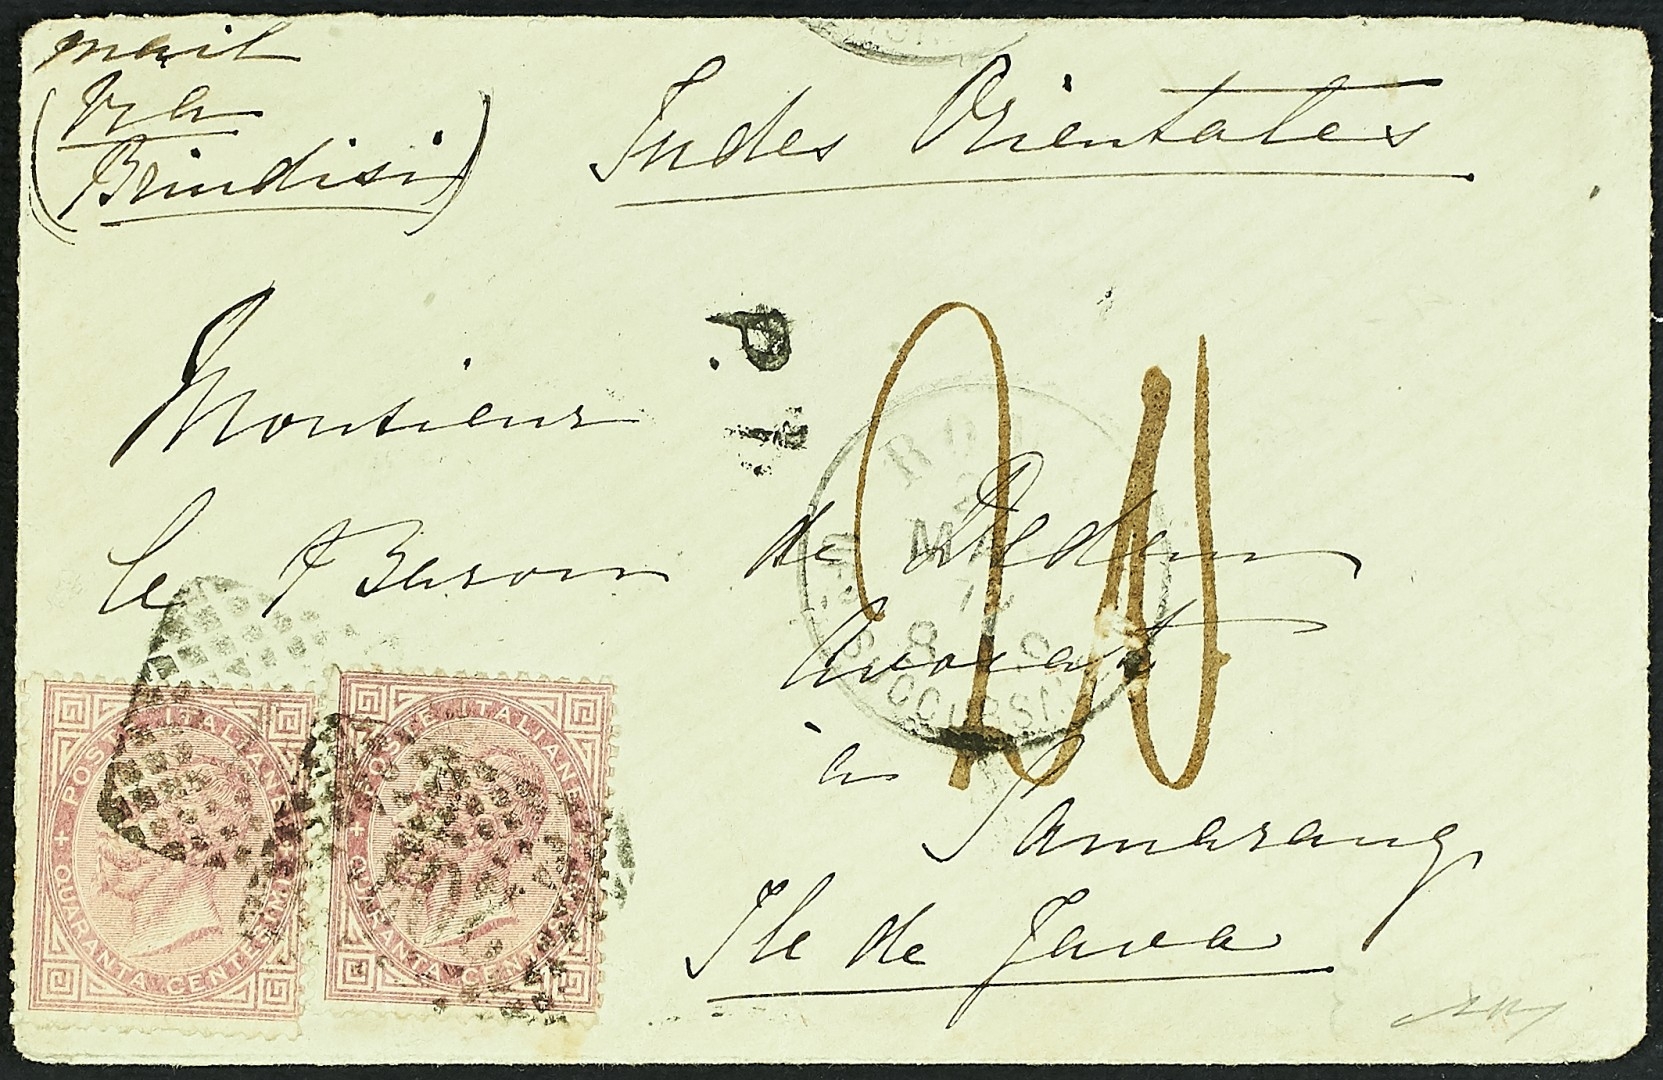 mail
(via
Brindisi)
Indes Orientales
Monsieur
le Baron de Dedem
Avocat
à Samarang
Ile de Java
P.
ROMA
2
MAG
72
8 S
SUCCURSALE
POSTE ITALIANE
QUARANTA CENTESIMI
POSTE ITALIANE
QUARANTA CENTESIMI